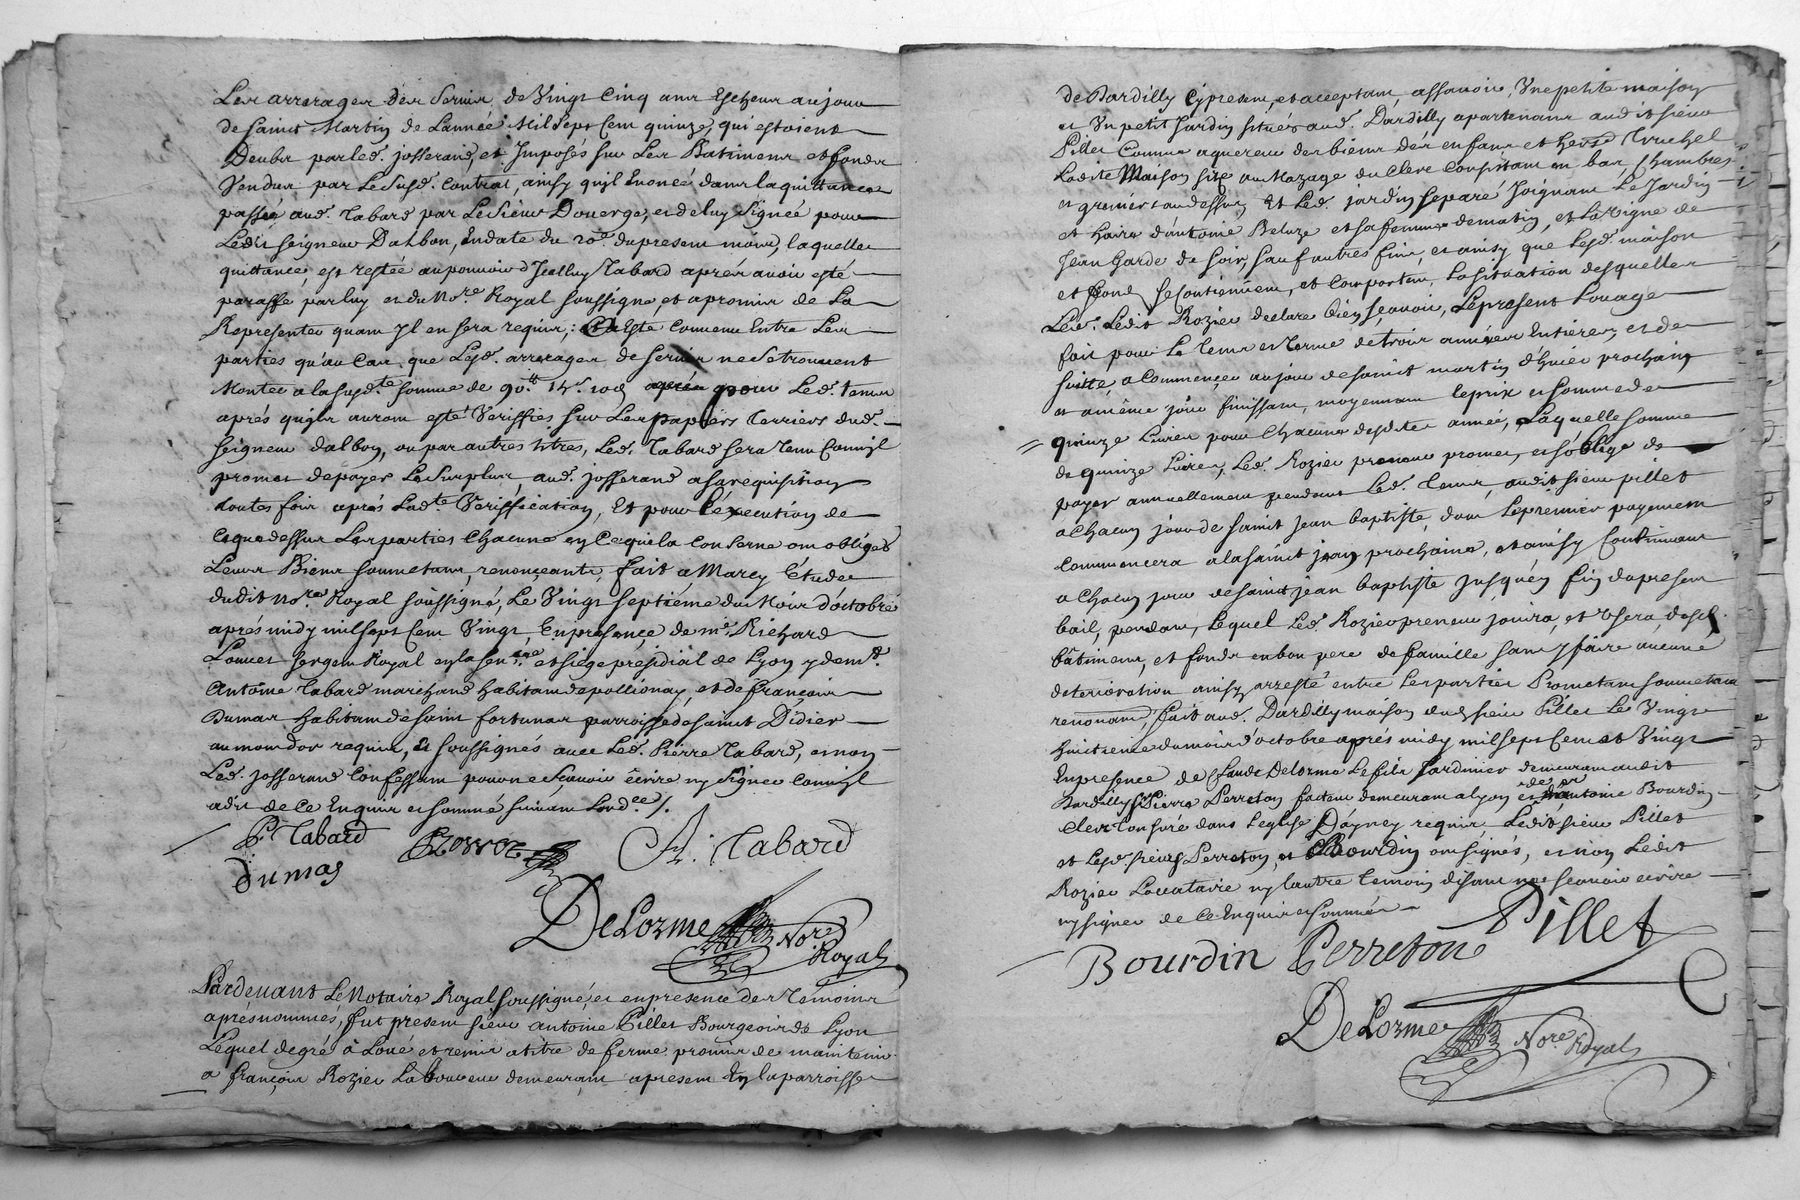 Les arrerages des servis de Vingt Cinq ans Escheus au jour
de saint Martin de Lannée Mil Sept Cent quinze, qui estoient
Deubs par led. josserand, et Imposés sur Les Batimens et fonds
Vendus par Le Susd. Contrat, ainsy quil Enoncé dans la quittance
passée aud. Tabard par Le Sieur Doverge, et de luy Signée pour
Ledit seigneur Dalbon, En date du 20e. du present mois, laquelle
quittance, est restée au pouvoir d'Icelluy Tabard aprés avoir esté
paraffé par luy et du Nore. Royal soussigné, et a promis de La
Representer quant Il en sera requis; Et a Esté Convenu Entre Les
parties qu'au Cas que Lesd. arrerages de servis ne se trouvent
Monter a la susdte somme de 90lt 14s. 10d Led. tems
aprés quils auront esté Veriffiés sur Les papiers Terriers dud.
seigneur dalbon, ou par autres titres, Led. Tabard sera tenu Comme Il
promet de payer Le Surplus aud. josserand a sa requisition
toutes fois aprés Ladte Veriffication, Et pour l'éxecution de
Ce que dessus Les parties Chacune en Ce qui la Conserne ont obligés
Leurs Biens soumetans, renonçants, fait a Marcy l'étude
du dit Nore. Royal soussigné, Le Vingt septieme du Mois d'octobre
aprés midy mil sept Cent Vingt, En presence de me. Richard
Louvet sergent Royal en la senée. et siege presidial de Lyon y demt.
Antoine Tabard marchand habitant de pollionay, et de françois
Dumas habitant de saint fortunat parroisse de saint Didier
au mont d'or requis, Et soussignés avec Led. Pierre Tabard, et non
Led. josserand Confessant pour ne Scavoir écrire ny Signer Comme Il
a dit de Ce Enquis et sommé suivant Lordce.
P. Tabard
A. Tabard
Dumas
DeLorme Nore. Royal
Pardevant Le Notaire Royal soussigné, et en presence des Témoins
aprés nommés, fut present sieur Antoine Pillet Bourgeois de Lyon
Lequel de gré à Loué et remis a titre de ferme promis de maintenir
a françois Rozier Laboureur demeurant a present En la parroisse
de Dardilly Cy present, et acceptant, assavoir, Une petite maison
et Un petit Jardin situés aud. Dardilly apartenant audit sieur
Pillet Comme aquereur des biens des enfans et heirs Truchel
Ladite Maison size au Mazage du Clere Consistant en bas, Chambres
et greniers au dessus, Et Led. jardin separé Joignant Le Jardin
et hoirs d'antoine Beluze et sa femme de matin, et La Vigne de
Jean Garde de soir, sauf autres fins, et ainsy que Lesd. maison
et fond se Contiennent, et Comportent, La situation desquelles
Led. Ledit Rozier declare bien scavoir, Le present Louage
fait pour Le tems et terme de trois années Entieres, et de
suitte, a Commencer au jour de saint martin d'hiver prochain
et a même jour finissant, moyennant le prix et somme de
quinze Livres pour Chacune desdites année, Laquelle somme
de quinze Livres, Led. Rozier preneur promet, et s'oblige de
payer annuellement pendant Led. tems, audit sieur pillet
a Chacun jour de saint Jean baptiste, dont Le premier payement
Commencera a la saint jean prochaine, et ainsy Continuant
a Chacun jour de saint jean baptiste jusqu'en fin du present
bail, pendant, Lequel Led. Rozier preneur jouira, et Usera, desd.
bâtimens, et fonds en bon pere de famille sans y faire aucune
deterioration ainsy arresté entre Les parties Prometans soumetans
renonçant, fait aud. Dardilly maison dudt sieur Pillet Le Vingt
huitieme du mois d'octobre aprés midy mil sept Cent et Vingt
En presence de Claude Delorme Le fils Jardinier demeurant audit
Dardilly, Pierre Perreton facteur demeurant a Lyon et de antoine Bourdin
Clerc Tonsuré dans L'eglise D'aynay requis, Ledit sieur Pillet
et Lesd. sieurs Perreton, et Bourdin ont signés, et non Ledit
Rozier Locataire ny L'autre temoin disant ne scavoir écrire
ny signer de Ce Enquis et sommés
Pillet
Bourdin Perreton
DeLorme Nore. Royal